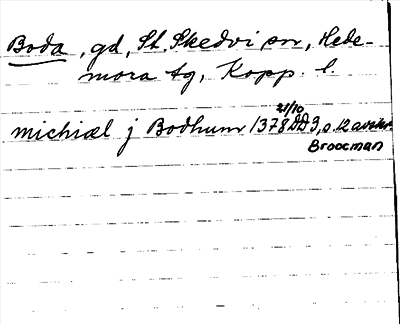 Boda, gd, St. Skedvi sn, Hede-
mora tg, Kopp. l.
michiæl j Bodhum 1378 21/10 DD 3, s. 12 avskr.
Broocman